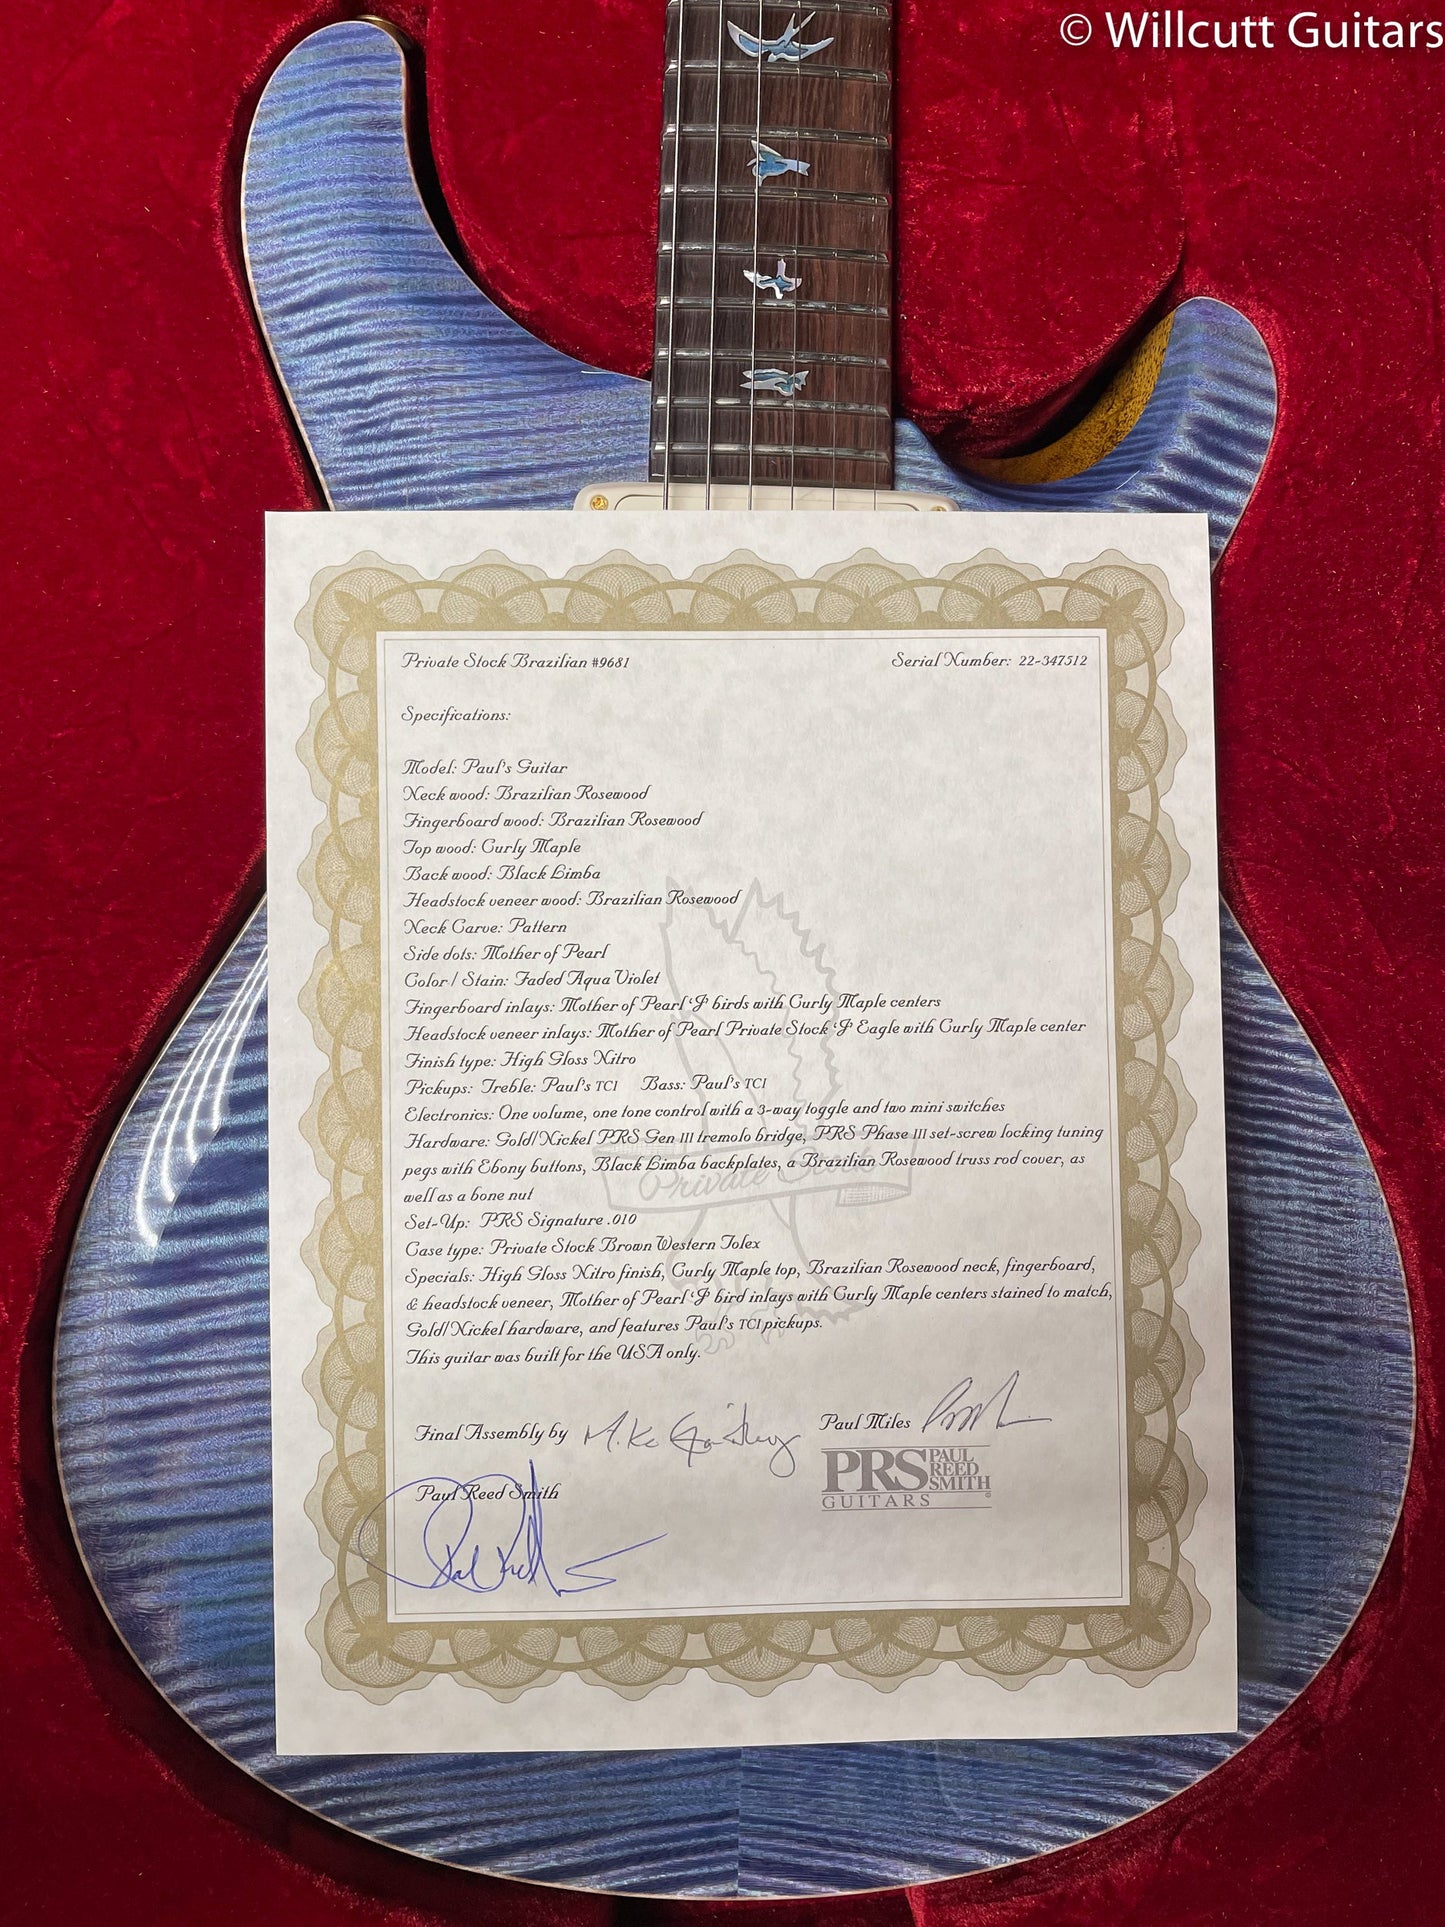 © Willcutt Guitars
Private Stock Brazilian #9681 Serial Number: 22-347512
Specifications:
Model: Paul's Guitar
Neck wood: Brazilian Rosewood
Fingerboard wood: Brazilian Rosewood
Top wood: Curly Maple
Back wood: Black Limba
Headstock veneer wood: Brazilian Rosewood
Neck Carve: Pattern
Side dots: Mother of Pearl
Color / Stain: Faded Aqua Violet
Fingerboard inlays: Mother of Pearl 'J' birds with Curly Maple centers
Headstock veneer inlays: Mother of Pearl Private Stock 'J' Eagle with Curly Maple center
Finish type: High Gloss Nitro
Pickups: Treble: Paul's TCI Bass: Paul's TCI
Electronics: One volume, one tone control with a 3-way toggle and two mini switches
Hardware: Gold/Nickel PRS Gen III tremolo bridge, PRS Phase III set-screw locking tuning
pegs with Ebony buttons, Black Limba backplates, a Brazilian Rosewood truss rod cover, as
well as a bone nut
Private Stock
Set-Up: PRS Signature .010
Case type: Private Stock Brown Western Tolex
Specials: High Gloss Nitro finish, Curly Maple top, Brazilian Rosewood neck, fingerboard,
& headstock veneer, Mother of Pearl 'J' bird inlays with Curly Maple centers stained to match,
Gold/Nickel hardware, and features Paul's TCI pickups.
This guitar was built for the USA only.
Final Assembly by Paul Miles
Paul Reed Smith
PRS PAUL
REED
SMITH
GUITARS